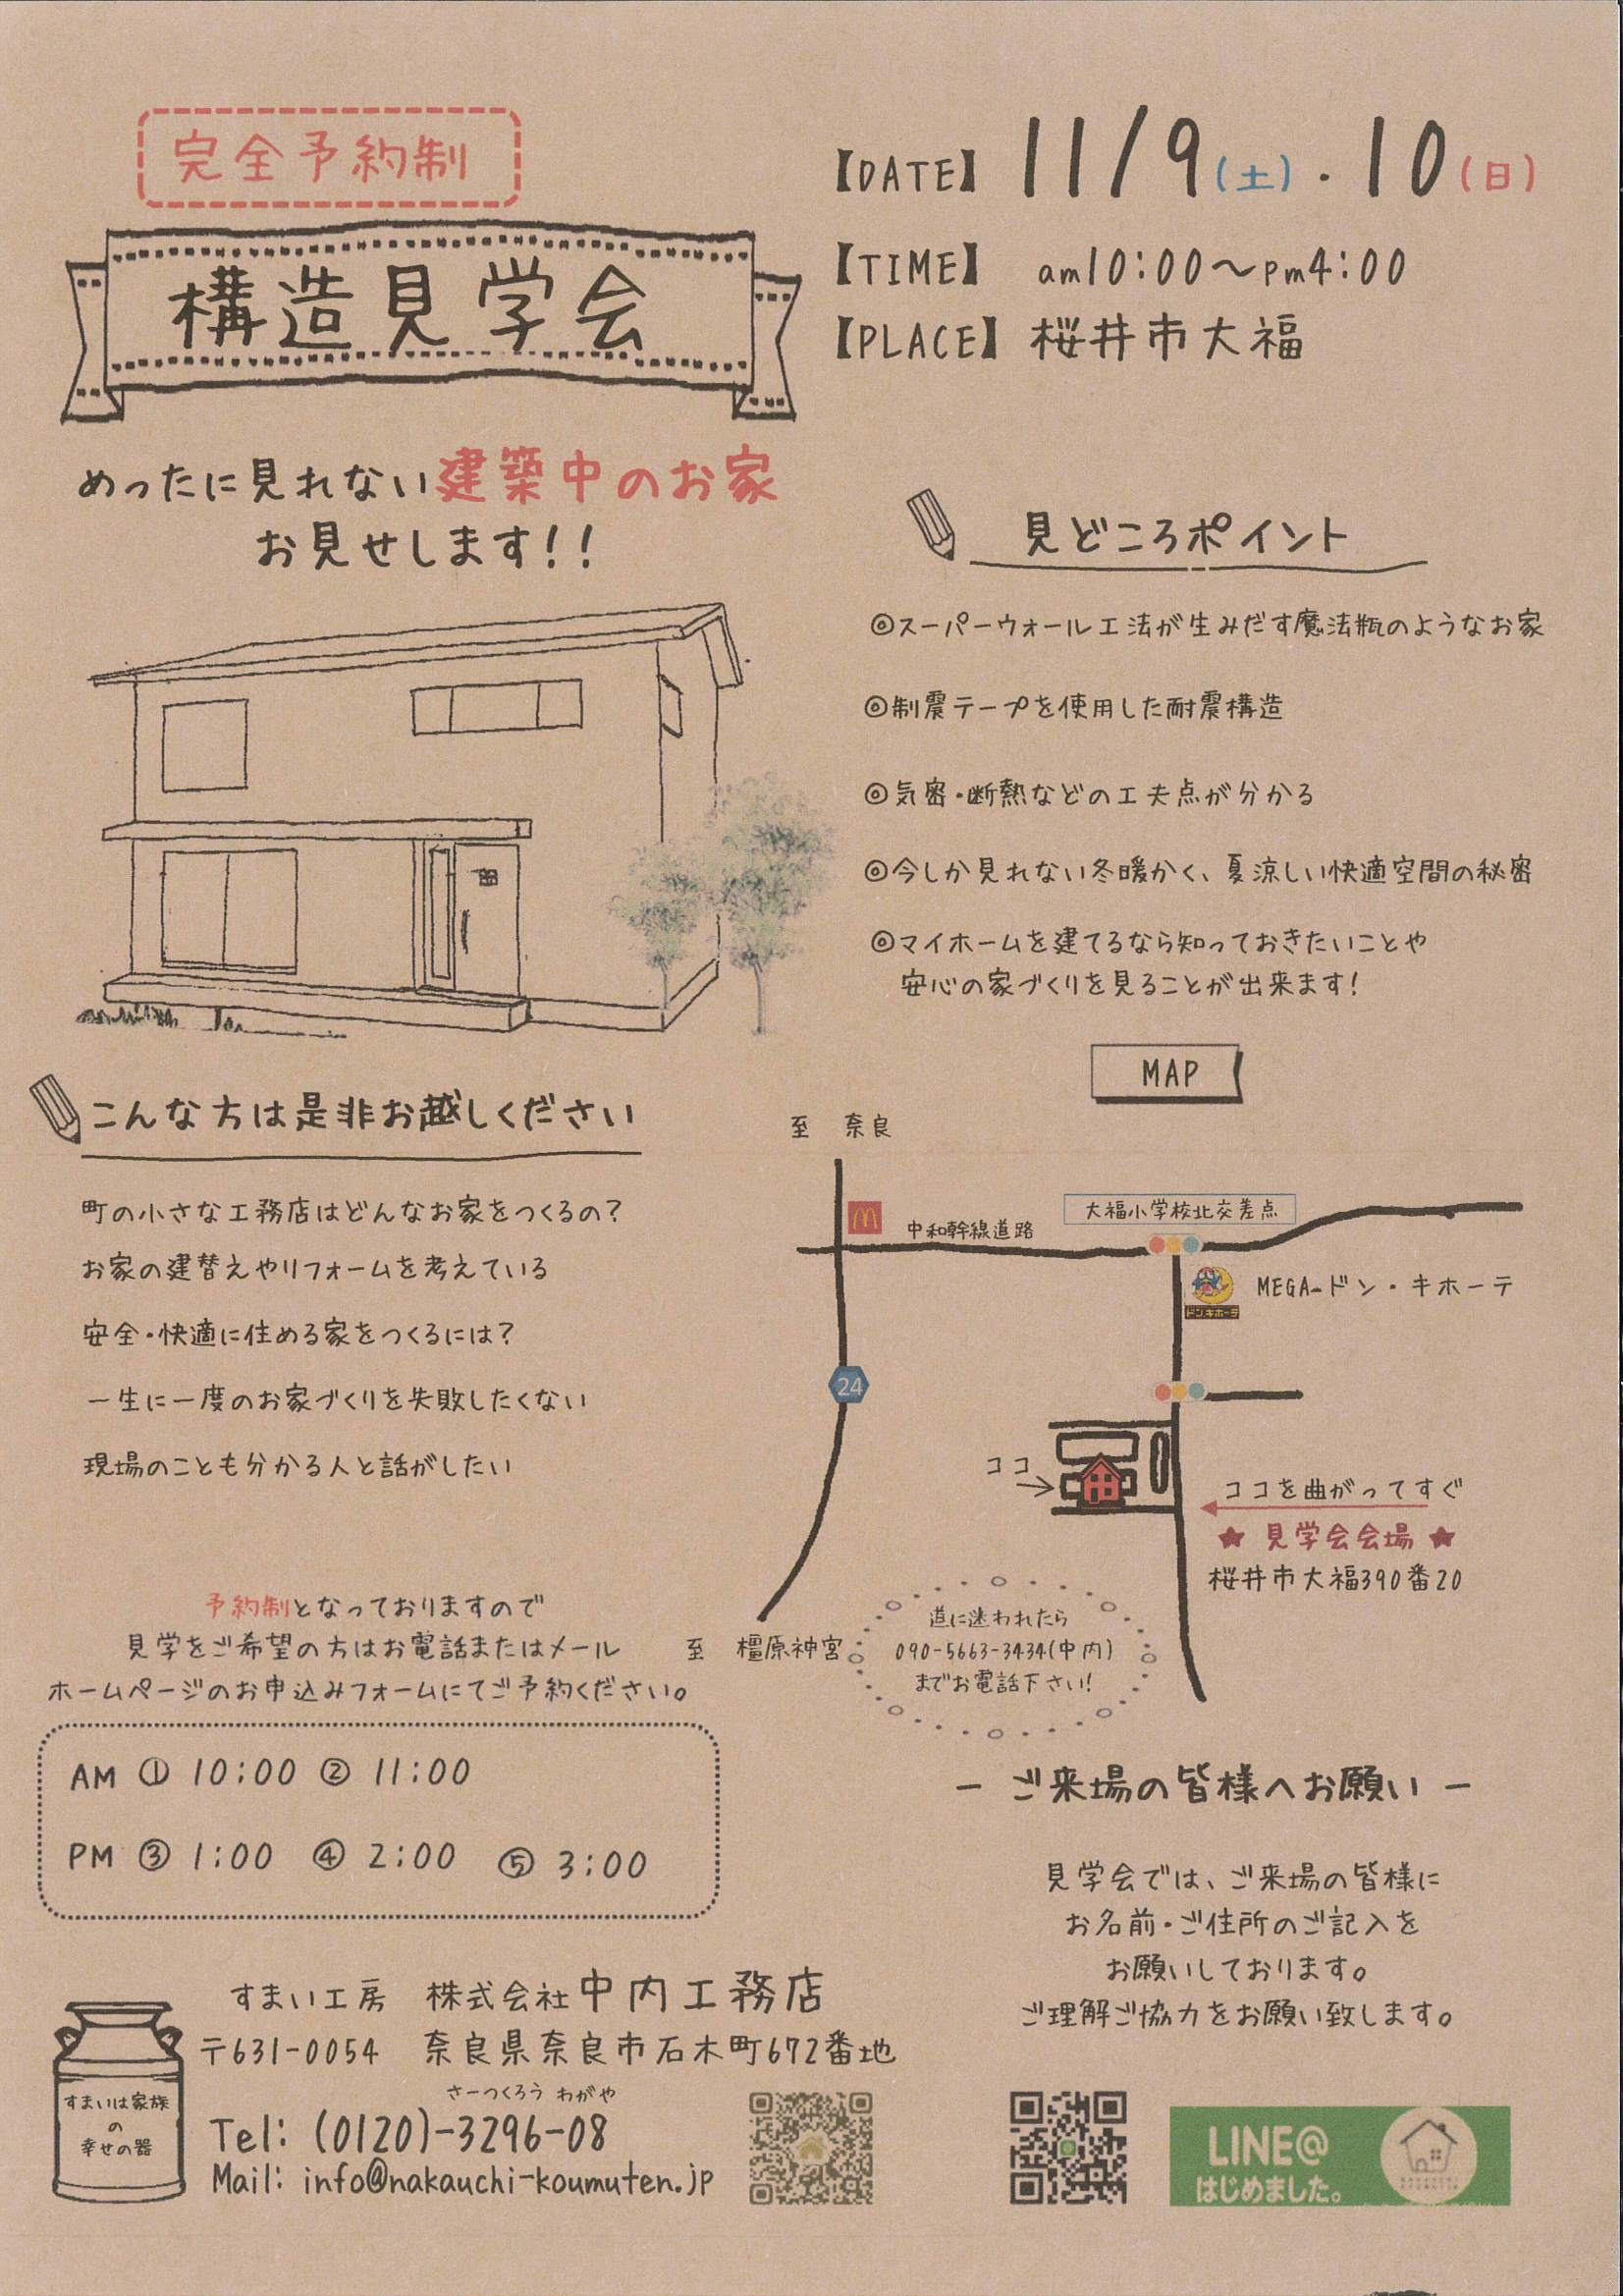 完全予約制
構造見学会
【DATE】 11/9(土)・10(日)
【TIME】 am10:00～pm4:00
【PLACE】 桜井市大福
めったに見れない建築中のお家
お見せします!!
見どころポイント
◎スーパーウォール工法が生みだす魔法瓶のようなお家
◎制震テープを使用した耐震構造
◎気密・断熱などの工夫点が分かる
◎今しか見れない冬暖かく、夏涼しい快適空間の秘密
◎マイホームを建てるなら知っておきたいことや
安心の家づくりを見ることが出来ます!
こんな方は是非お越しください
町の小さな工務店はどんなお家をつくるの?
お家の建替えやリフォームを考えている
安全・快適に住める家をつくるには?
一生に一度のお家づくりを失敗したくない
現場のことも分かる人と話がしたい
MAP
至 奈良
中和幹線道路
大福小学校北交差点
ドン.キホーテ
MEGA-ドン・キホーテ
24
ココ
ココを曲がってすぐ
★ 見学会会場 ★
桜井市大福390番20
至 橿原神宮
道に迷われたら
090-5663-3434(中内)
までお電話下さい!
予約制となっておりますので
見学をご希望の方はお電話またはメール
ホームページのお申込みフォームにてご予約ください。
AM ① 10:00 ② 11:00
PM ③ 1:00 ④ 2:00 ⑤ 3:00
- ご来場の皆様へお願い -
見学会では、ご来場の皆様に
お名前・ご住所のご記入を
お願いしております。
ご理解ご協力をお願い致します。
すまいは家族
の
幸せの器
すまい工房 株式会社中内工務店
〒631-0054 奈良県奈良市石木町672番地
さーつくろう わがや
Tel: (0120)-3296-08
Mail: info@nakauchi-koumuten.jp
LINE@
はじめました。